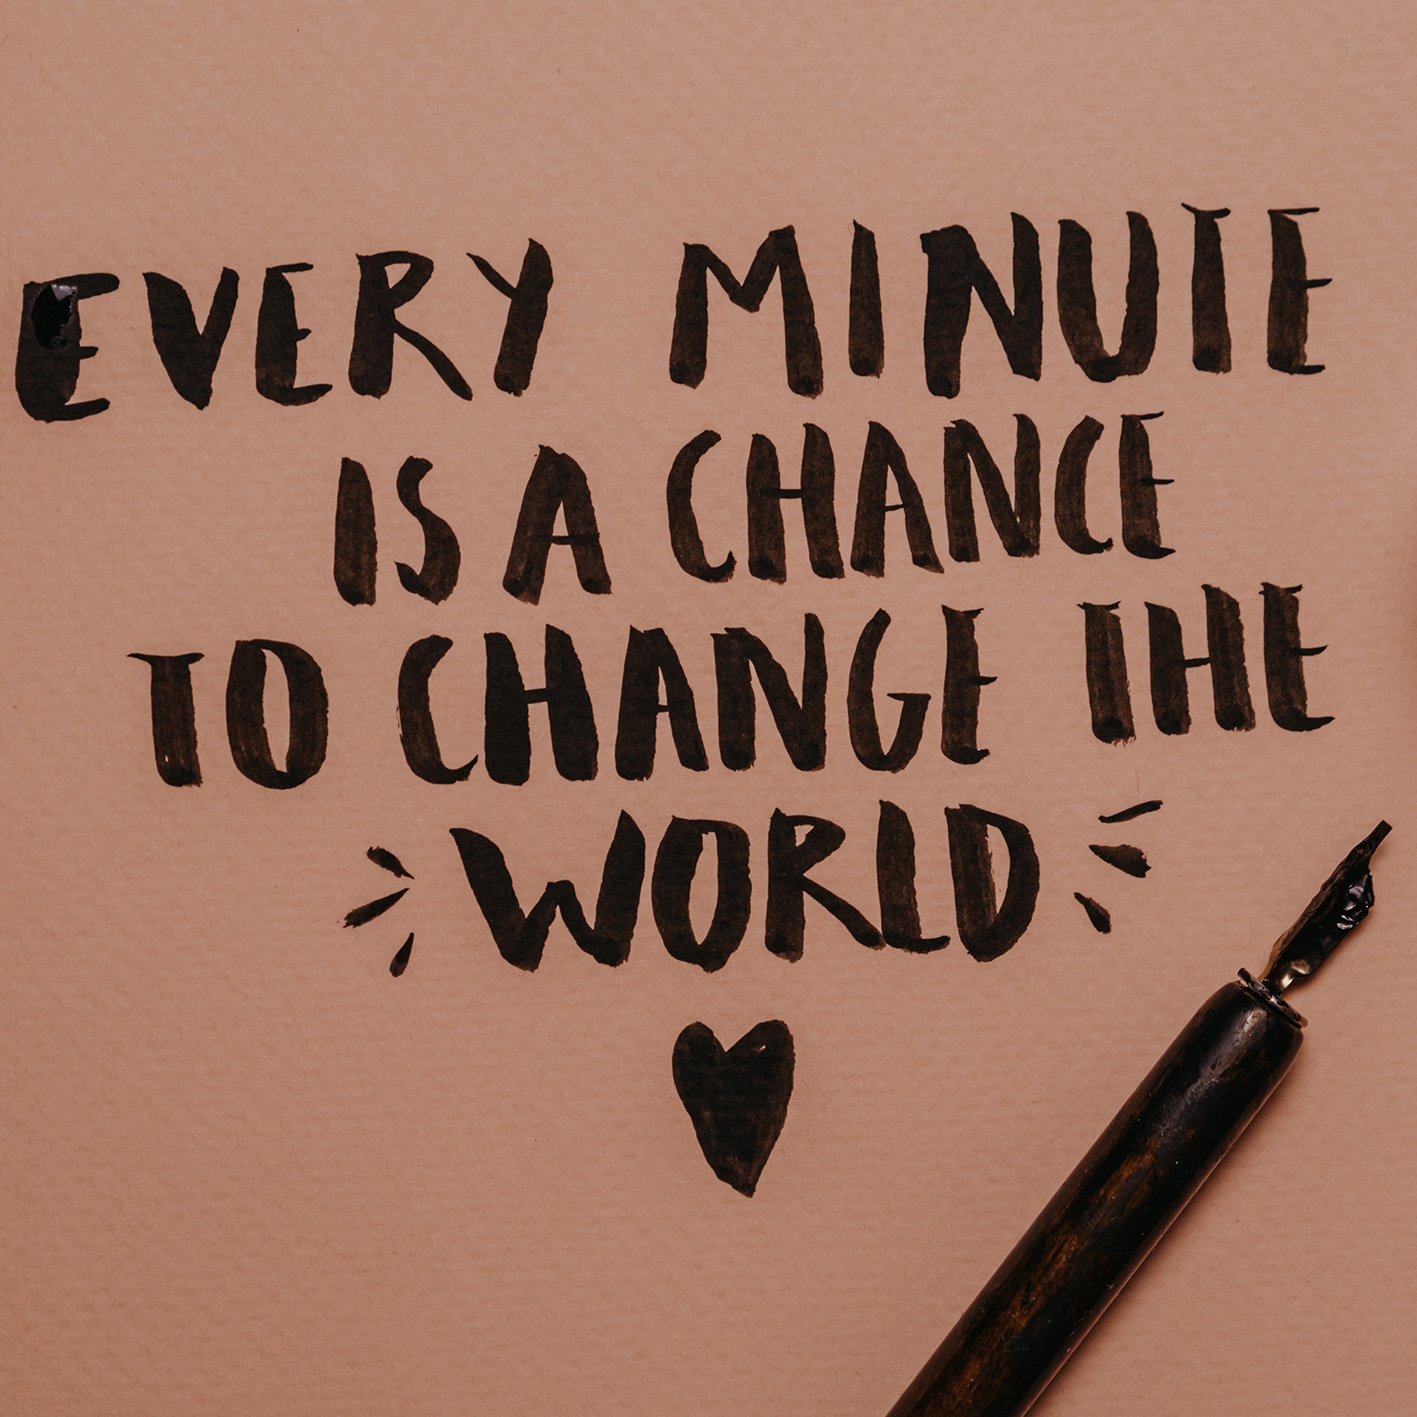 EVERY MINUTE
IS A CHANCE
TO CHANGE THE
WORLD